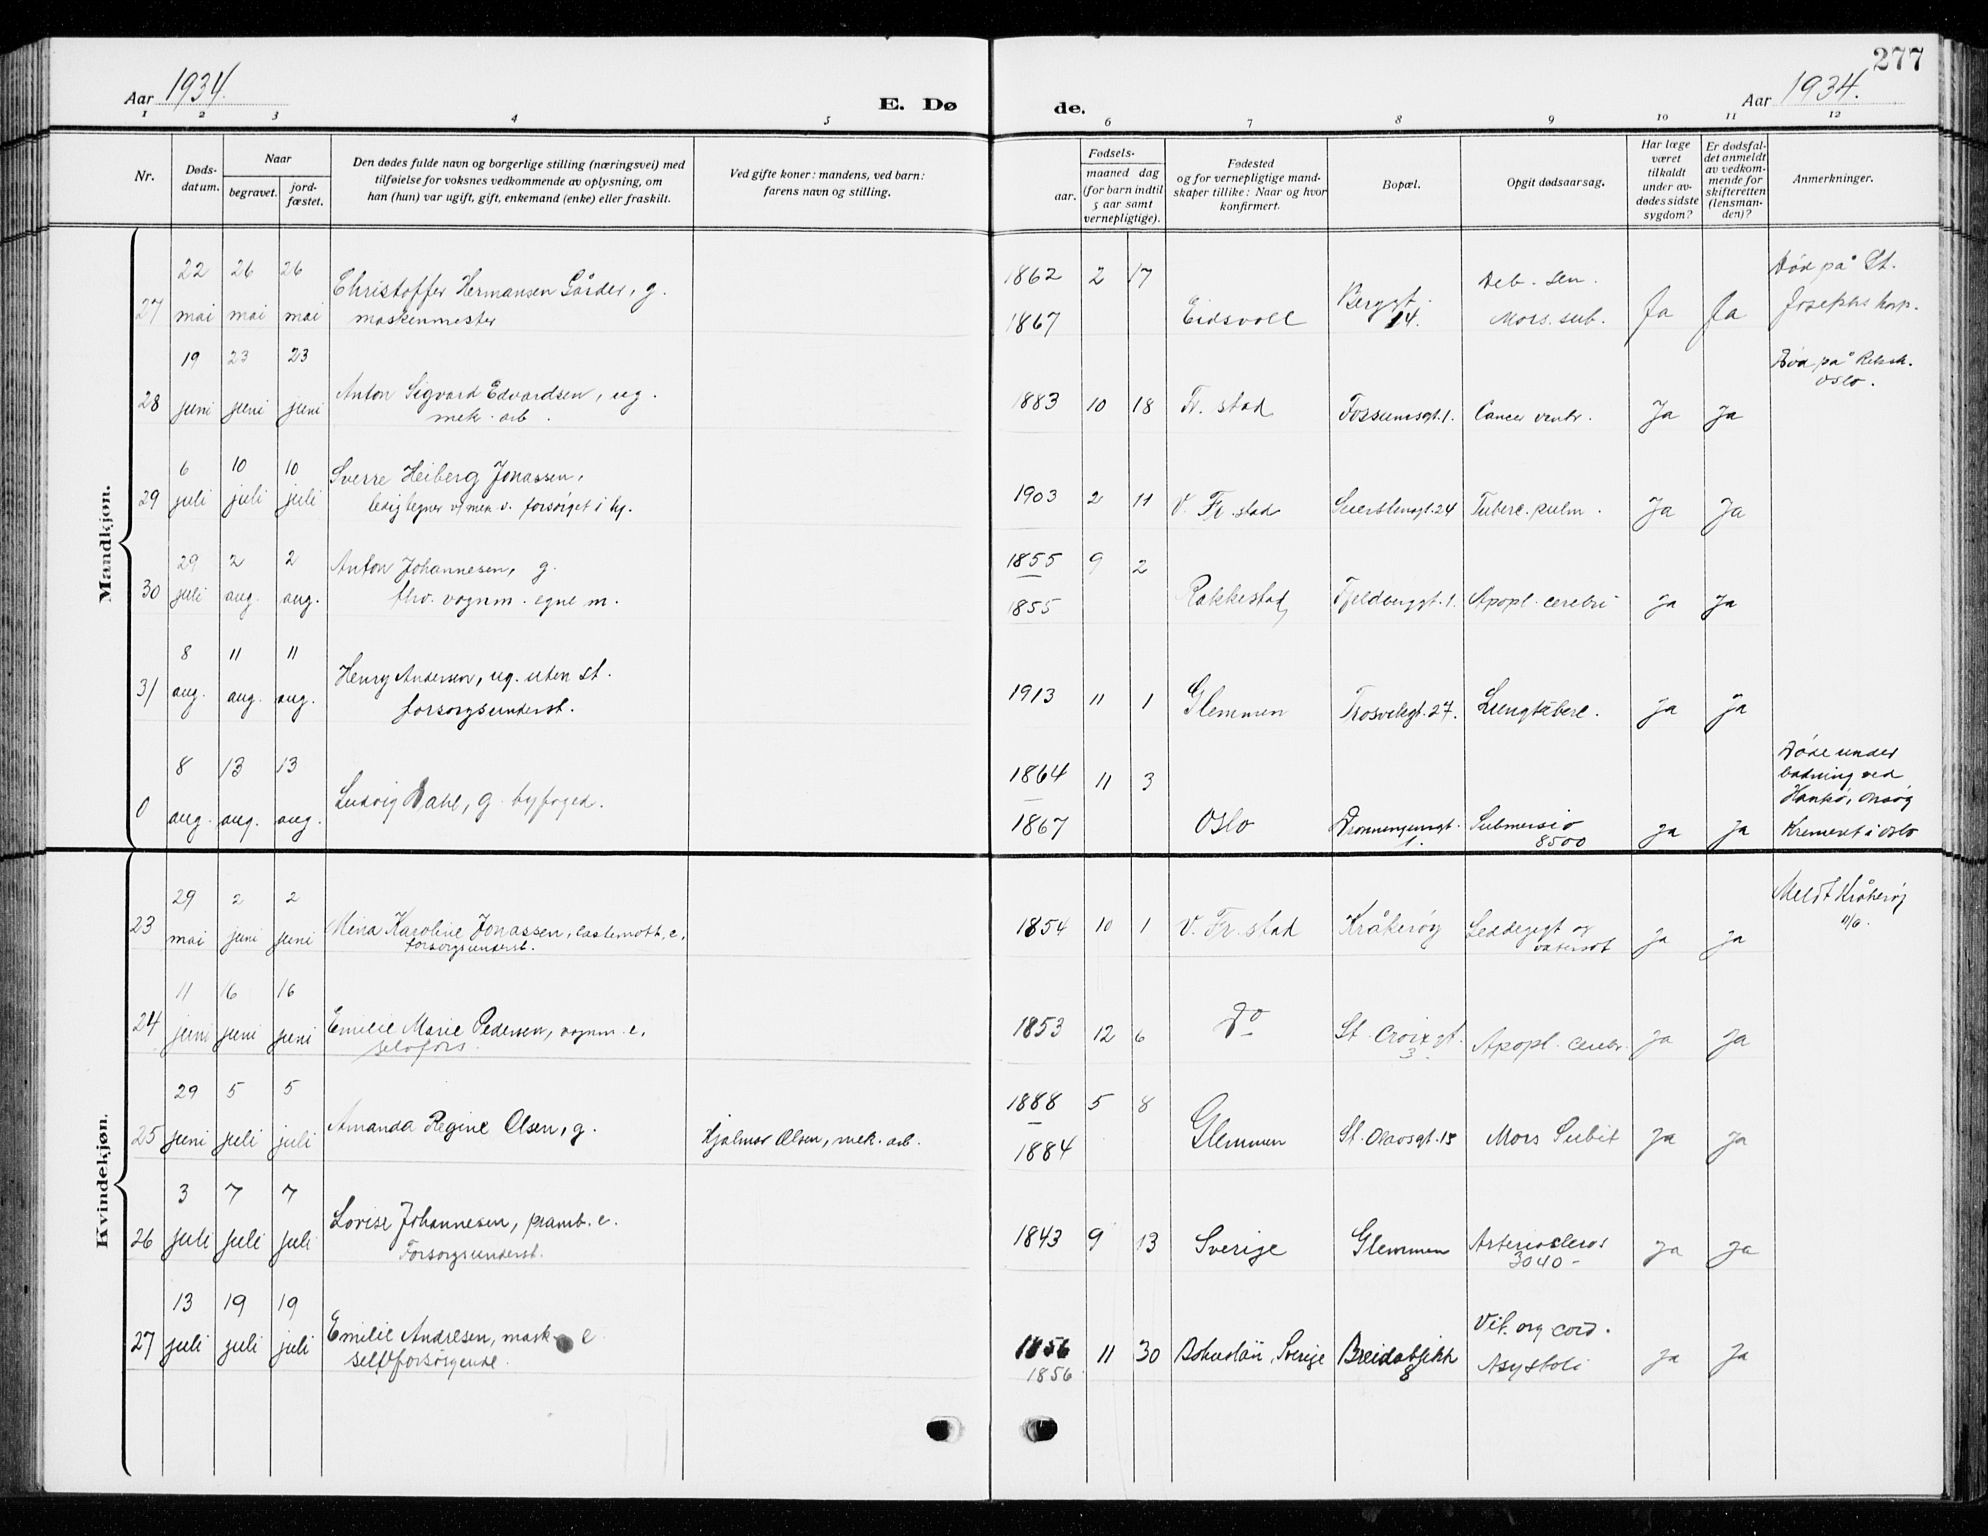 277
Aar 1934.
E. Dø de.
Aar 1934.
1 2 3 4 5 6 7 8 9 10 11 12
Nr.
Døds-
datum.
Naar
begravet.
jord-
fæstet.
Den dødes fulde navn og borgerlige stilling (næringsvei) med
tilføielse for voksnes vedkommende av oplysning, om
han (hun) var ugift, gift, enkemand (enke) eller fraskilt.
Ved gifte koner: mandens, ved barn:
farens navn og stilling.
Fødsels-
aar.
maaned dag
(for barn indtil
5 aar samt
vernepligtige).
Fødested
og for vernepligtige mand-
skaper tillike: Naar og hvor
konfirmert.
Bopæl.
Opgit dødsaarsag.
Har læge
været
tilkaldt
under av-
dødes sidste
sygdom?
Er dødsfal-
det anmeldt
av vedkom-
mende for
skifteretten
(lensman-
den)?
Anmerkninger.
Mandkjøn.
22 26 26 1862 2 17 Deb. sen. Død på St.
27 mai mai mai Christoffer Hermansen Gårder, g.
maskenmester 1867 Eidsvoll Berggt. 14. Mors. sub. Ja Ja Josephs hosp.
19 23 23 Død på Riksh.
Oslo.
28 juni juni juni Anton Sigvard Edvardsen, ug.
mek. arb. 1883 10 18 Fr. stad Fossumsgt. 1. Cancer ventr. Ja Ja
6 10 10
29 juli juli juli Sverre Heiberg Jonassen,
forsørget i by. 1903 2 11 V. Fr. stad 24 Tuberc. pulm. Ja Ja
29 2 2 1855 9 2
30 juli aug. aug. Anton Johannesen, g.
fhv. vognm. egne m. 1855 Rakkestad Fjeldberggt. 1. Apopl. cerebri Ja Ja
8 11 11
31 aug. aug. aug. Henry Andersen, ug. uten st.
forsorgsunderst. 1913 11 1 Glemmen Trosvikgt. 27. Lungtuberc. Ja Ja
8 13 13 1864 11 3 Døde under
badning ved
Hankø, Onsøy
0 aug. aug. aug. Ludvig Dahl, g. byfoged. 1867 Oslo Dronningensgt. 1. Submersio
8500 Ja Ja Kremert i Oslo
Kvindekjøn.
29 2 2 Meldt Kråkerøy
11/6.
23 mai juni juni Mina Karoline Jonassen, lastemott. e.
forsorgsunderst. 1854 10 1 V. Fr. stad Kråkerøy Leddegigt og
vatersot Ja Ja
11 16 16
24 juni juni juni Emilie Marie Pedersen, vognm. e.
selvfors. 1853 12 6 Do St. Croix gt.
3 Apopl. cerebr. Ja Ja
29 5 5 1888 5 8
25 juni juli juli Amanda Regine Olsen, g. Hjalmar Olsen, mek. arb. 1884 Glemmen St. Olavsgt. 15 Mors Subit Ja Ja
3 7 7
26 juli juli juli Lovise Johannesen, pramb. e.
Forsorgsunderst. 1843 9 13 Sverige Glemmen Arterioscleros
3040 - Ja Ja
13 19 19 Vit. org cord.
27 juli juli juli Emilie Andresen, mask. e
selvforsørgende. 1856 11 30 Bohuslän, Sverige Breidablikk
8 Asystoli Ja Ja
1856